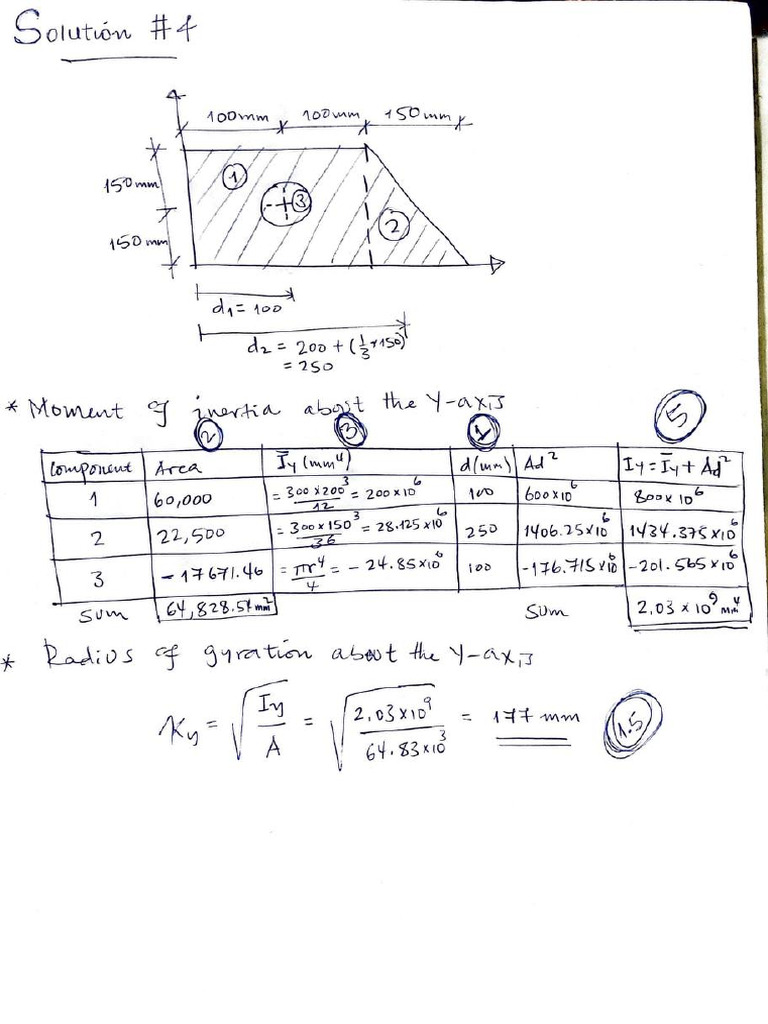 Solution #4
100mm 100mm 150mm
150mm
150mm
1
3
2
d1 = 100
d2 = 200 + (1/3 * 150)
= 250
* Moment of inertia about the Y-axis
5
2 3 1
Component Area Īy (mm⁴) d(mm) Ad² Iy = Īy + Ad²
1 60,000 = 300×200³/12 = 200×10⁶ 100 600×10⁶ 800×10⁶
2 22,500 = 300×150³/36 = 28.125×10⁶ 250 1406.25×10⁶ 1434.375×10⁶
3 -17671.46 = πr⁴/4 = -24.85×10⁶ 100 -176.715×10⁶ -201.565×10⁶
Sum 64,828.54 mm² Sum 2.03 × 10⁹ mm⁴
* Radius of gyration about the Y-axis
Ky = √(Iy/A) = √(2.03×10⁹/64.83×10³) = 177 mm
1.5